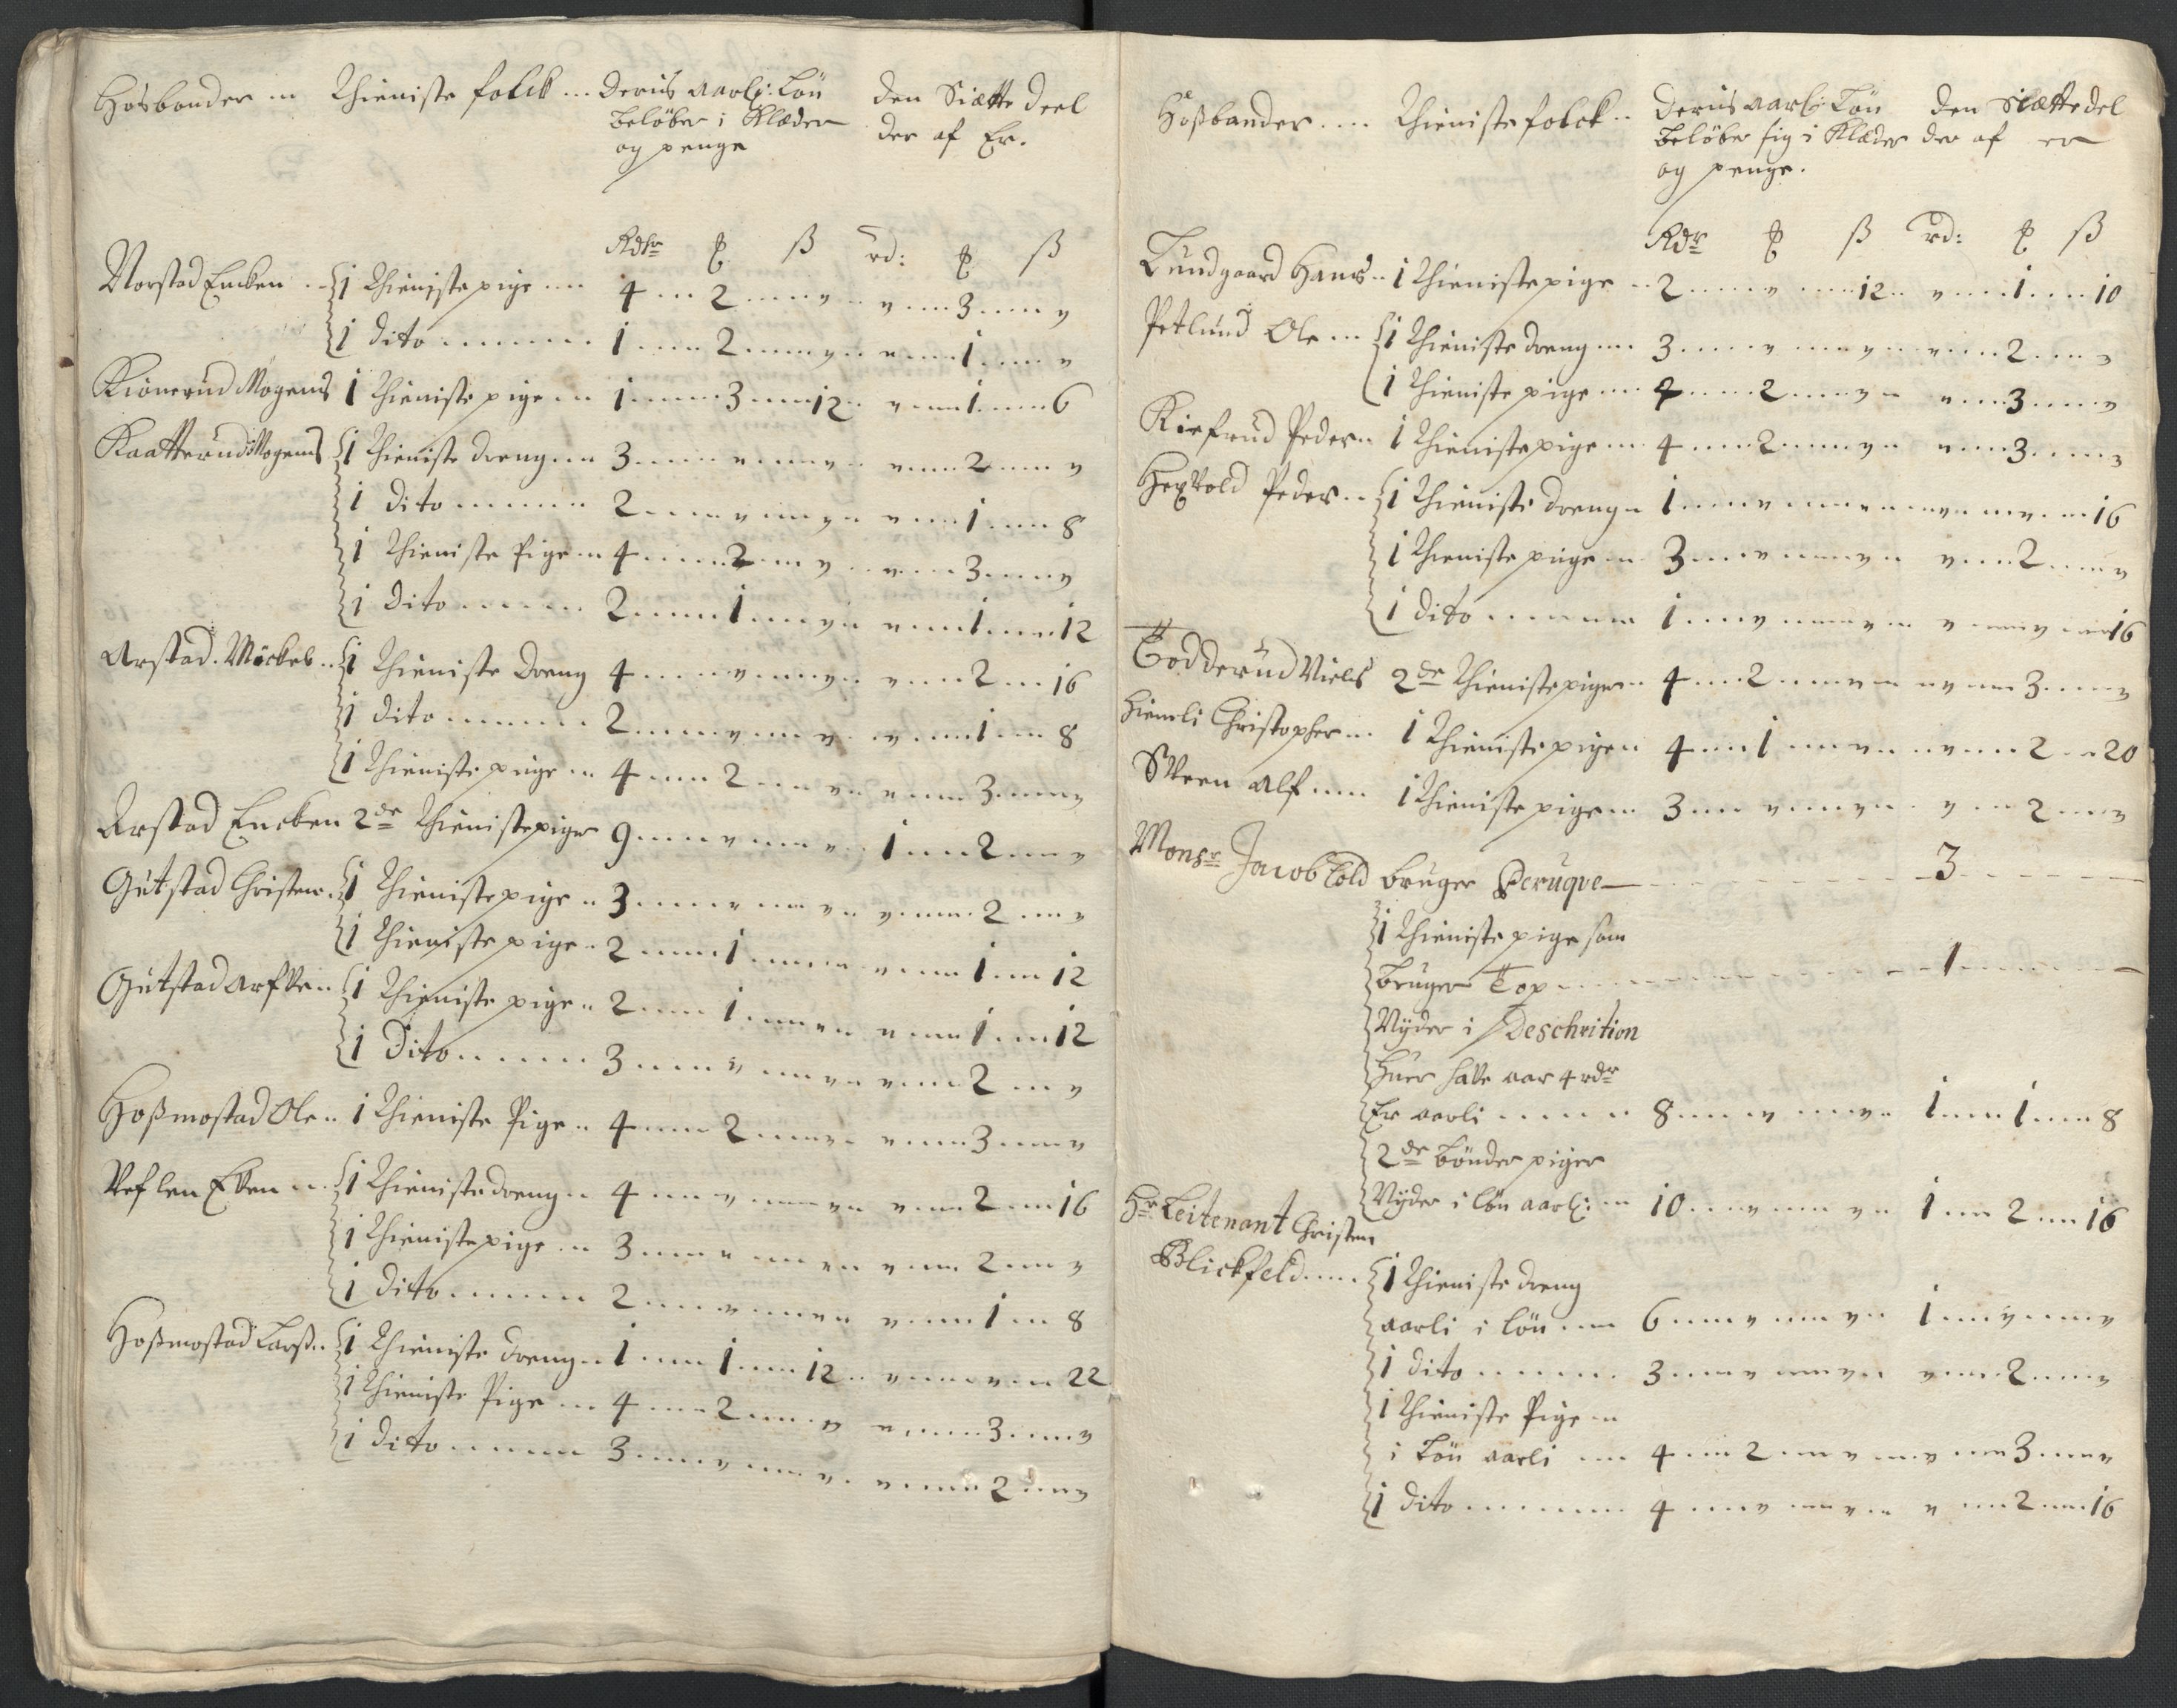 Hosbonder ... Thieniste folck ... Deris aarl: Løn den Siætte deel
beløber i Klæder der af Er.
og penge
Rdlr ß rd: ß
Norstad Encken .. 1 Thieniste pige .... 4 ... 2 .... " .. " .... 3 .... "
1 Dito ....... 1 .... 2 .... " .. " .... 1 .... "
Kiønerud Mogens 1 Thieniste pige ... 1 .... 3 .... 12 .. " .... 1 .... 6
Kaatterud Mogens 1 Thieniste dreng ... 3 .... " .... " .. " .... 2 .... "
1 Dito ...... 2 .... " .... " .. " .... 1 .... 8
1 Thieniste Pige ... 4 .... 2 .... " .. " .... 3 .... "
1 Dito ...... 2 .... 1 .... " .. " .... 1 .... 12
Arstad Michel .. 1 Thieniste Dreng 4 .... " .... " .. " .... 2 ... 16
1 Dito ...... 2 .... " .... " .. " .... 1 .... 8
1 Thieniste pige ... 4 .... 2 .... " .. " .... 3 .... "
Arstad Encken 2de Thieniste piger 9 .... " .... " .. 1 .... 2 .... "
Gutstad Christen . 1 Thieniste pige .. 3 .... " .... " .. " .... 2 .... "
1 Thieniste pige .. 2 .... 1 .... " .. " .... 1 .... 12
Gutstad Arfve .. 1 Thieniste pige .. 2 .... 1 .... " .. " .... 1 .... 12
1 Dito ...... 3 .... " .... " .. " .... 2 .... "
Hoßmostad Ole .. 1 Thieniste Pige .. 4 .... 2 .... " .. " .... 3 .... "
Veflen Even ... 1 Thieniste dreng .. 4 .... " .... " .. " .... 2 .... 16
1 Thieniste pige ... 3 .... " .... " .. " .... 2 .... "
1 Dito ...... 2 .... " .... " .. " .... 1 .... 8
Hoßmostad Larß .. 1 Thieniste dreng .. 1 .... 1 .... 12 .. " .... " .... 22
1 Thieniste Pige ... 4 .... 2 .... " .. " .... 3 .... "
1 Dito ...... 3 .... " .... " .. " .... 2 .... "
Hoßbonder .... Thieniste folck .. Deris aarl: Løn den Siættedel
beløber sig i Klæder der af er
og penge.
Rdr ß rd: ß
Lundgaard Hans .. 1 Thieniste pige .. 2 .... " .... 12 .. " .... 1 .... 10
Petlund Ole ... 1 Thieniste dreng ... 3 .... " .... " .. " .... 2 .... "
1 Thieniste pige ... 4 .... 2 .... " .. " .... 3 .... "
Peder .. 1 Thieniste pige ... 4 .... 2 .... " .. " .... 3 .... "
Peder .. 1 Thieniste dreng .. 1 .... " .... " .. " .... " .... 16
1 Thieniste piige ... 3 .... " .... " .. " .... 2 .... "
1 Dito ...... 1 .... " .... " .. " .... " .... 16
Todderud Niels 2de Thieniste piger .. 4 .... 2 .... " .. " .... 3 .... "
Hiemli Christopher ... 1 Thieniste pige .. 4 .... 1 .... " .. " .... 2 ... 20
Sveen Alf .... 1 Thieniste pige ... 3 .... " .... " .. " .... 2 .... "
Monsr Jacob Cold bruger Peruqve 3
1 Thieniste pige som
bruger Top 1
Nyder i Deschrition
huer halve aar 4 rdr
Er aarli ..... 8 .... " .... " .. 1 .... 1 .... 8
2de bønder piger
Nyder i løn aarl: ... 10 .... " .... " .. 1 .... 2 .... 16
Hr Leitenant Christen
Blickfeld ..... 1 Thieniste dreng
aarli i løn .... 6 .... " .... " .. 1 .... " .... "
1 Dito ...... 3 .... " .... " .. " .... 2 .... "
1 Thieniste Pige ...
i Løn aarli ... 4 .... 2 .... " .. " .... 3 .... "
1 Dito ...... 4 .... " .... " .. " .... 2 .... 16